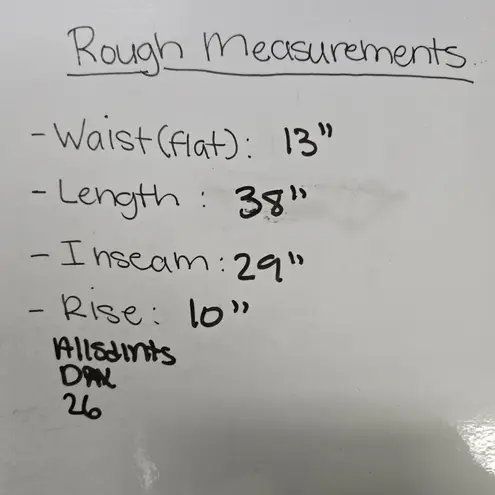 Rough Measurements
- Waist(flat): 13"
- Length : 38"
- Inseam: 29"
- Rise: 10"
26